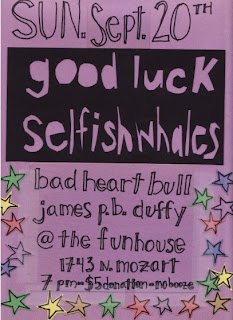 SUN. Sept. 20TH
good luck
selfish whales
bad heart bull
james p.b. duffy
@ the funhouse
1743 N. mozart
7 pm-$5 donation-no booze